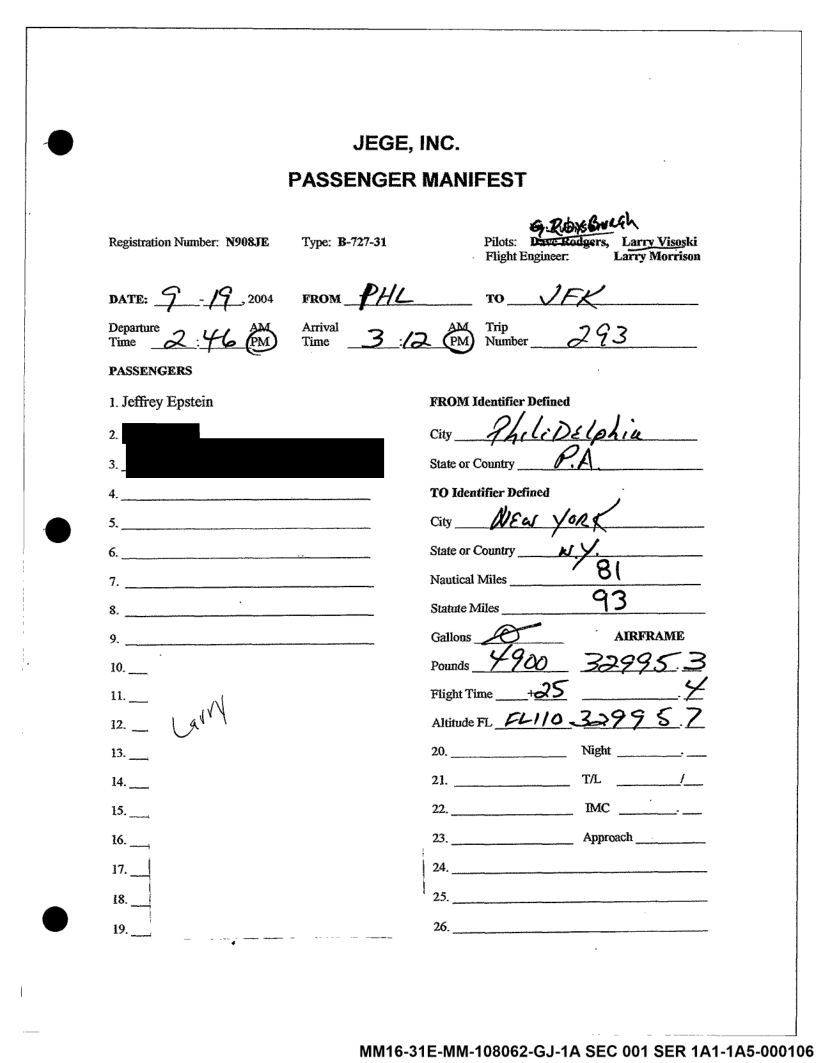 JEGE, INC.
PASSENGER MANIFEST
Registration Number: N908JE Type: B-727-31 Pilots: Dave Rodgers, Larry Visoski
Flight Engineer: Larry Morrison
DATE: 9 - 19, 2004 FROM PHL TO JFK
Departure Time 2 : 46 AM PM Arrival Time 3 : 12 AM PM Trip Number 293
PASSENGERS
1. Jeffrey Epstein FROM Identifier Defined
2. City PhiliDElphia
3. State or Country P.A.
4. TO Identifier Defined
5. City NEW YORK
6. State or Country N.Y.
7. Nautical Miles 81
8. Statute Miles 93
9. Gallons AIRFRAME
10. Pounds 4900 32995.3
11. Flight Time +25 .4
12. Larry Altitude FL FL110 32995.7
13. 20. Night .
14. 21. T/L /
15. 22. IMC .
16. 23. Approach
17. 24.
18. 25.
19. 26.
MM16-31E-MM-108062-GJ-1A SEC 001 SER 1A1-1A5-000106